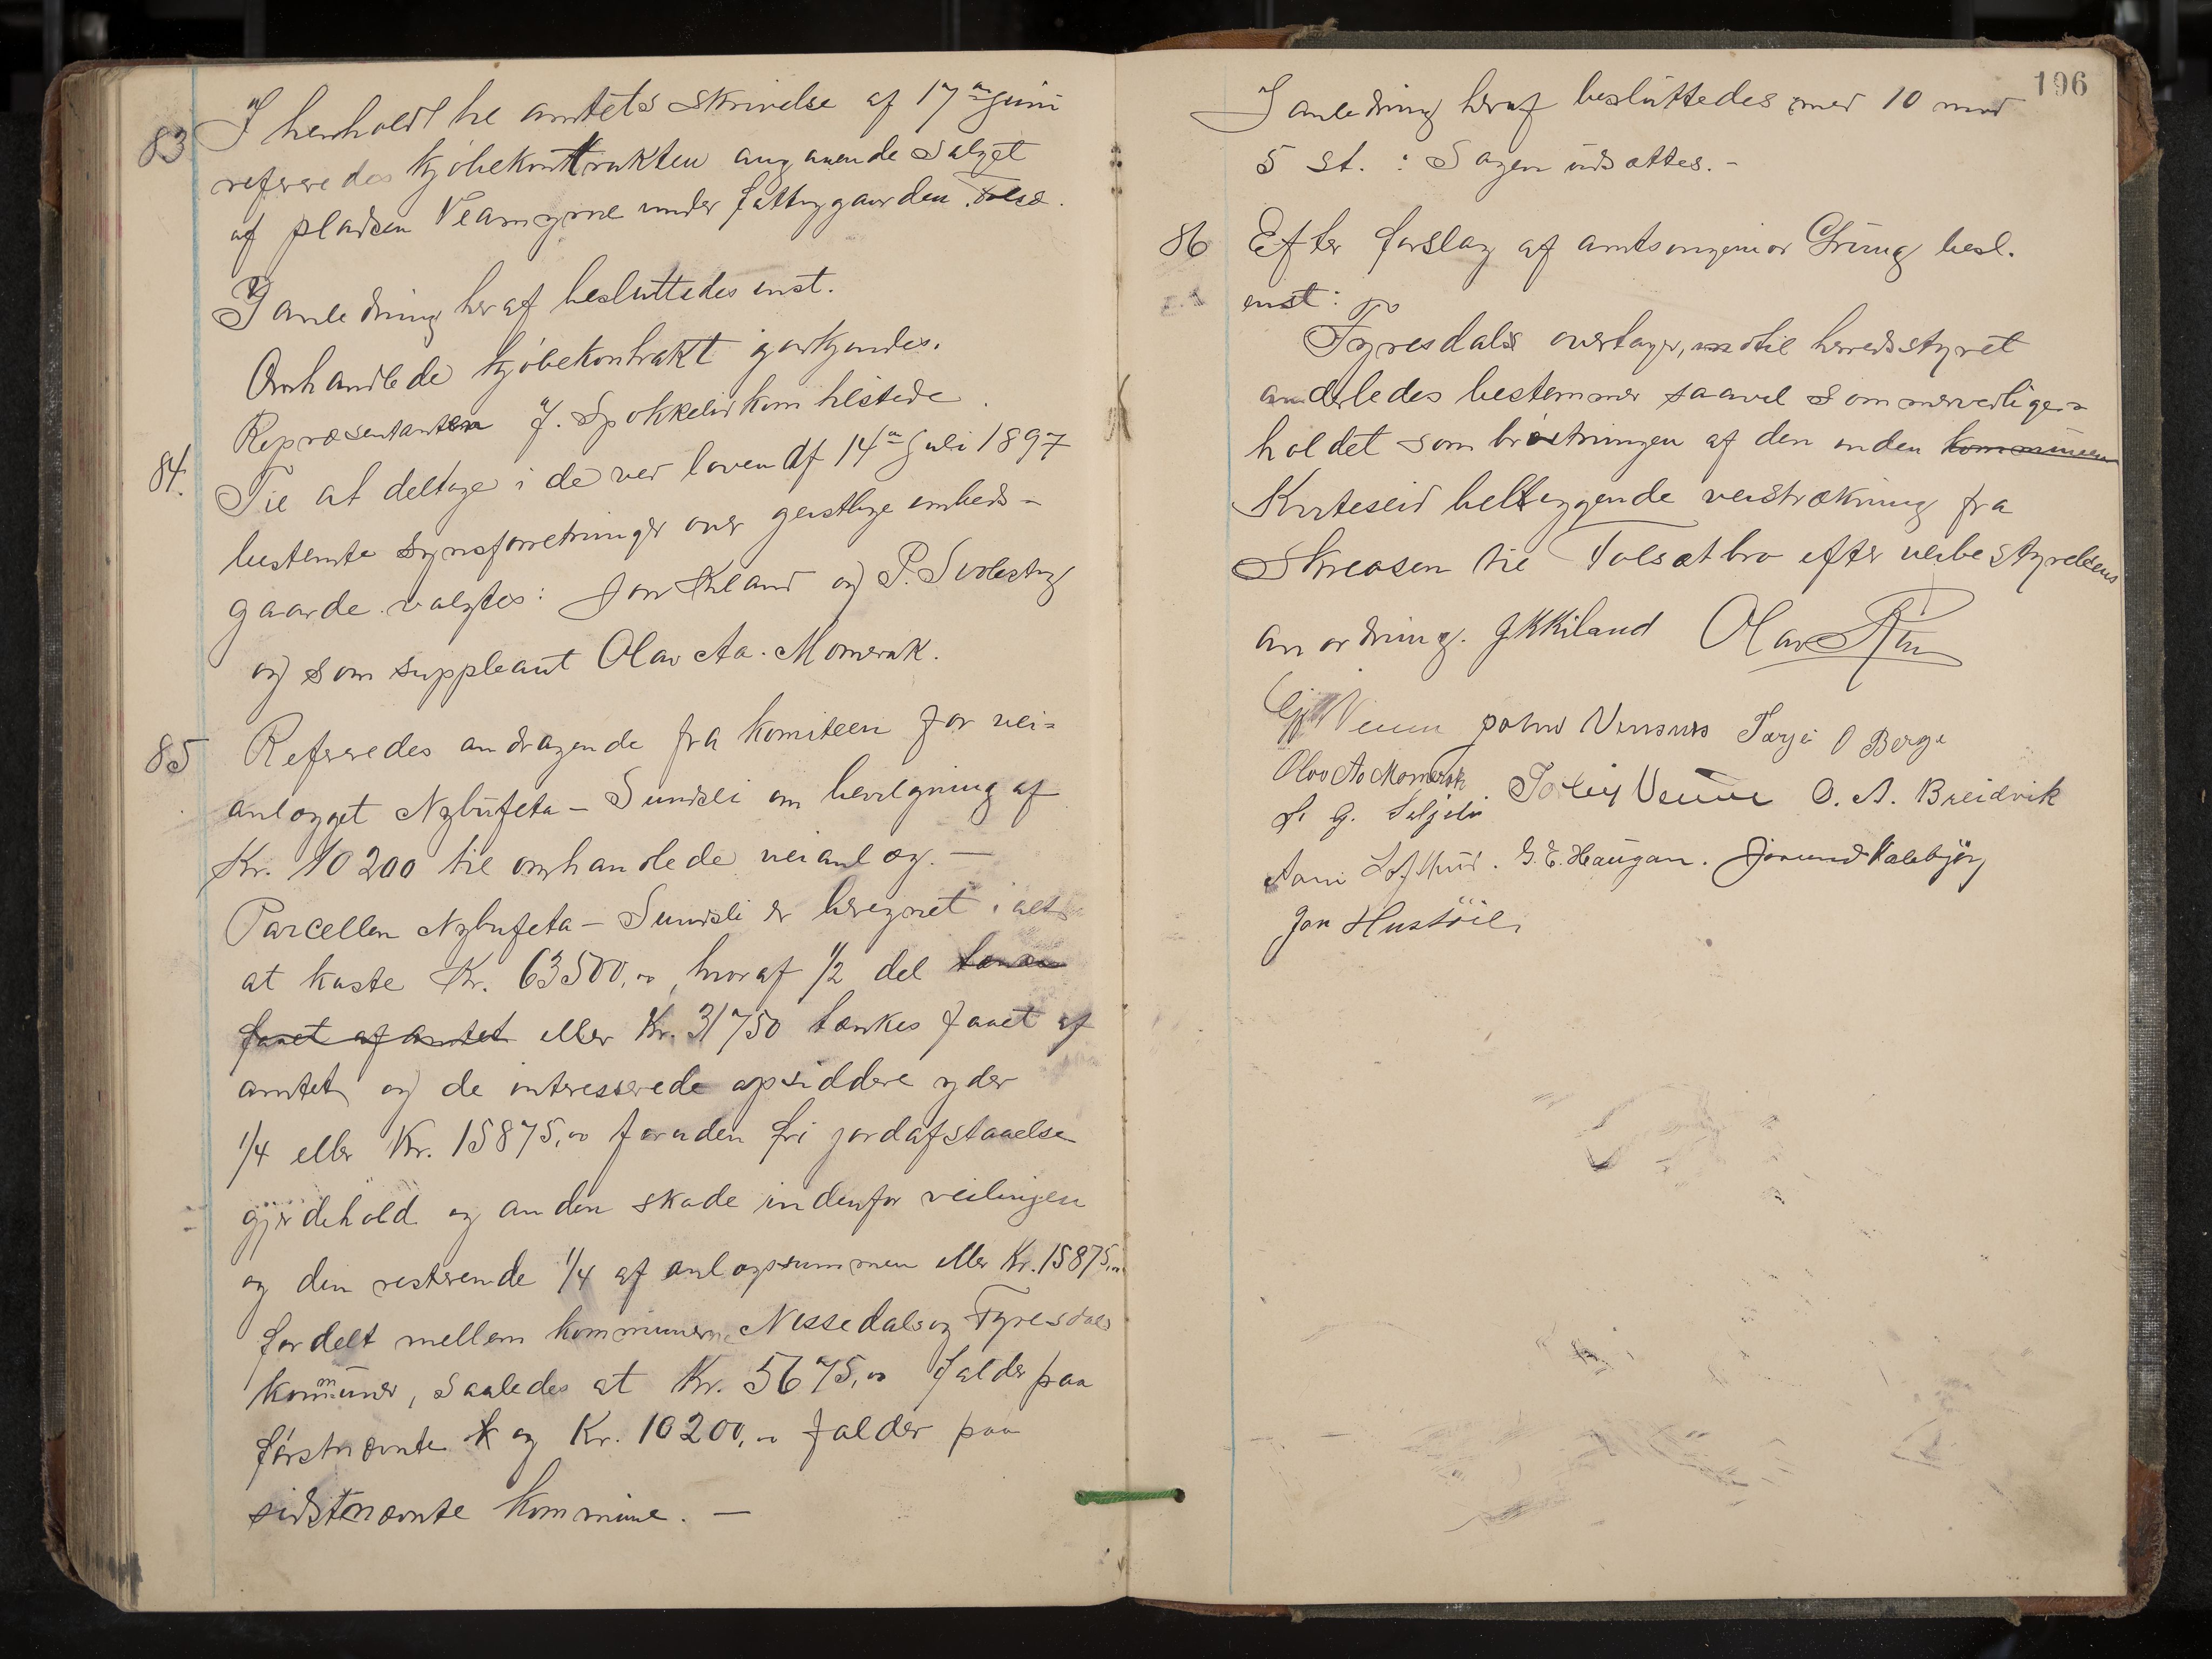 83 I henhold til amtets skrivelse af 17de Juni
refereredes kjøbekontrakten angaaende salget
af pladsen Veamyrne under fattiggaarden
I anledning heraf besluttedes enst.
Omhandlede kjøbekontrakt godkjendes.
Repræsentanten J. Spokkelid kom tilstede.
84. Til at deltage i de ved loven af 14de Juli 1897
bestemte synsforretninger over geistlige embeds-
gaarde valgtes: Jon Kiland og P.
og som suppleant Olav Aa. Momrak.
85 Refereredes andragende fra komiteen for vei-
anlægget Nybufeta - Sundsli om bevilgning af
Kr. 10200 til omhandlede veianlæg. -
Parcellen Nybufeta - Sundsli er beregnet i alt
at koste Kr. 63500,00, hvoraf 1/2 del
faaet af amtet eller Kr. 31750 tænkes faaet af
amtet og de interesserede opsiddere yder
1/4 eller Kr. 15875,00 foruden fri jordafstaaelse
gjerdehold og anden skade indenfor veilinjen
og den resterende 1/4 af anlægssummen eller Kr. 15875,00
fordelt mellem kommunerne Nissedals og Tyresdals
kommuner, saaledes at Kr. 5675,00 falder paa
førstnævnte k og Kr. 10200,00 falder paa
sidstnævnte kommune. -
196
I anledning heraf besluttedes med 10 mod
5 st. : Sagen udsættes. -
86 Efter forslag af amtsingeniør Grüng besl.
enst:
Tyresdals overtager, indtil herredsstyret
anderledes bestemmer saavel sommerveiligeh-
holdet som brøitningen af den inden kommunen
Kviteseid beliggende veistrækning fra
Skreosen til Tolsæt bro efter veibestyrelsens
anordning. JKKiland Olav
Veum Tarjei O Berge
Olav Aa Momrak. Veum O. A. Breidvik
G. Seljelid
Lofthus. G. E. Haugan. Jorund Kaasbjør
Jon Hustøil